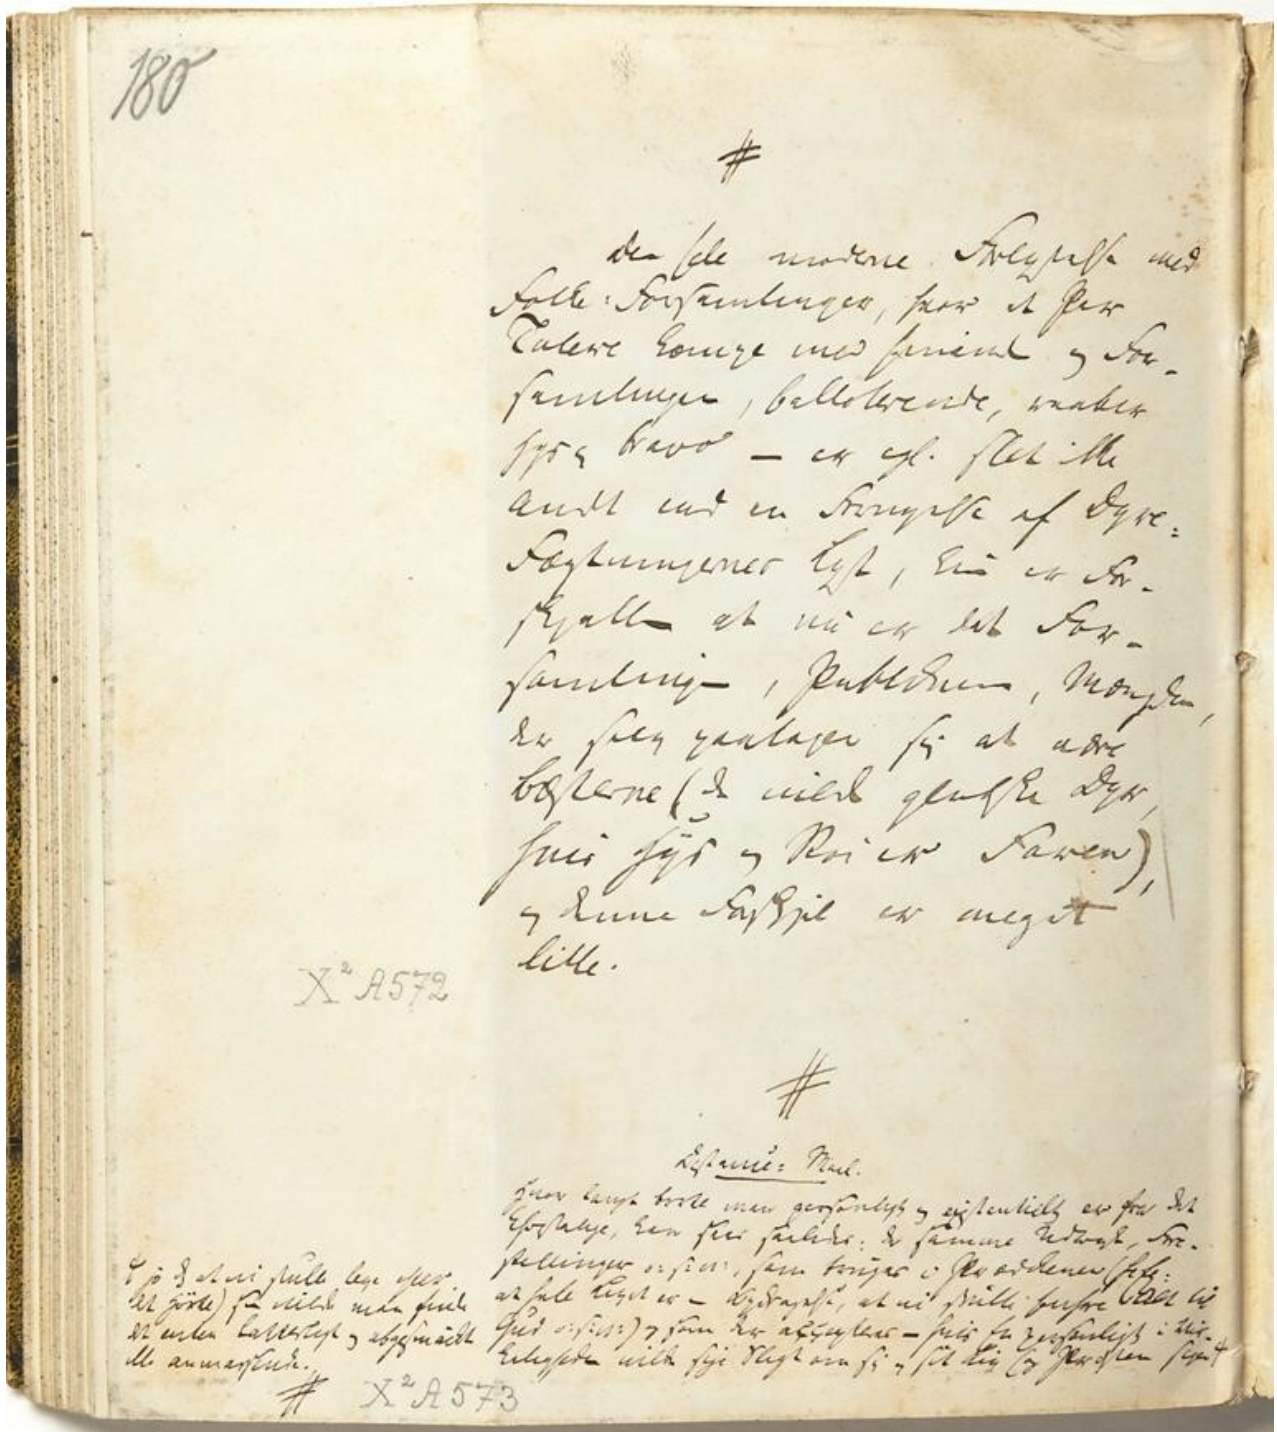 180
#
Den hele moderne Forlystelse med
Folke-Forsamlinger, hvor et Par
Talere kæmpe med hinand og For-
samlingen, balloterende, raaber
hys og bravo – er egl. slet ikke
Andt end en Fornyelse af Dyre-
Fægtningernes Lyst, kun er For-
skjellen at nu er det For-
samlingen, Publikum, Mængden,
der selv paatager sig at være
Bæsterne (de vilde glubske Dyr,
hvis hÿs og Skrig er Faren),
og denne Forskjel er meget
lille.
X² A 572
#
Distance-Maal.
Hvor langt borte man personligt og existentielt er fra det
Christelige, kan sees saaledes: de samme Udtryk, Fore-
stillinger o: s: v:, som bruges i Prædikener (f: Ex:
at hele Livet er en Opdragelse, at vi skulle henføre Alt til
Gud o: s: v:) og som der accepteres – hvis En personligt i Vir-
keligheden vilde sige Sligt om sig og sit Liv (og Præsten siger
jo dog at vi skulle leve efter
det Hørte) saa vilde man finde
det enten latterligt og abgeschmackt
ell. anmassende.
#
X² A 573